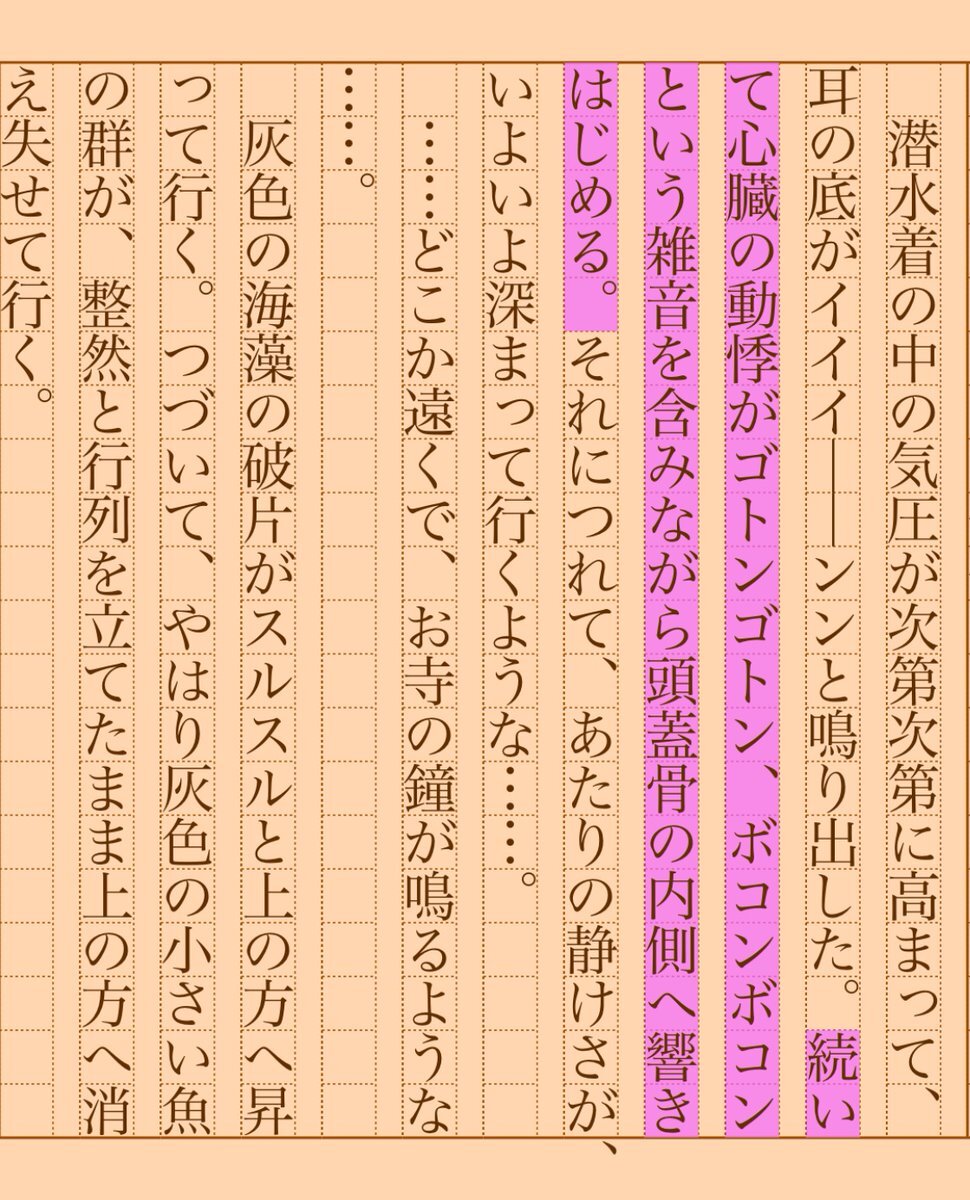 潜水着の中の気圧が次第次第に高まって、
耳の底がイイイ――ンンと鳴り出した。続い
て心臓の動悸がゴトンゴトン、ボコンボコン
という雑音を含みながら頭蓋骨の内側へ響き
はじめる。それにつれて、あたりの静けさが、
いよいよ深まって行くような……。
　……どこか遠くで、お寺の鐘が鳴るような
……。
　灰色の海藻の破片がスルスルと上の方へ昇
って行く。つづいて、やはり灰色の小さい魚
の群が、整然と行列を立てたまま上の方へ消
え失せて行く。